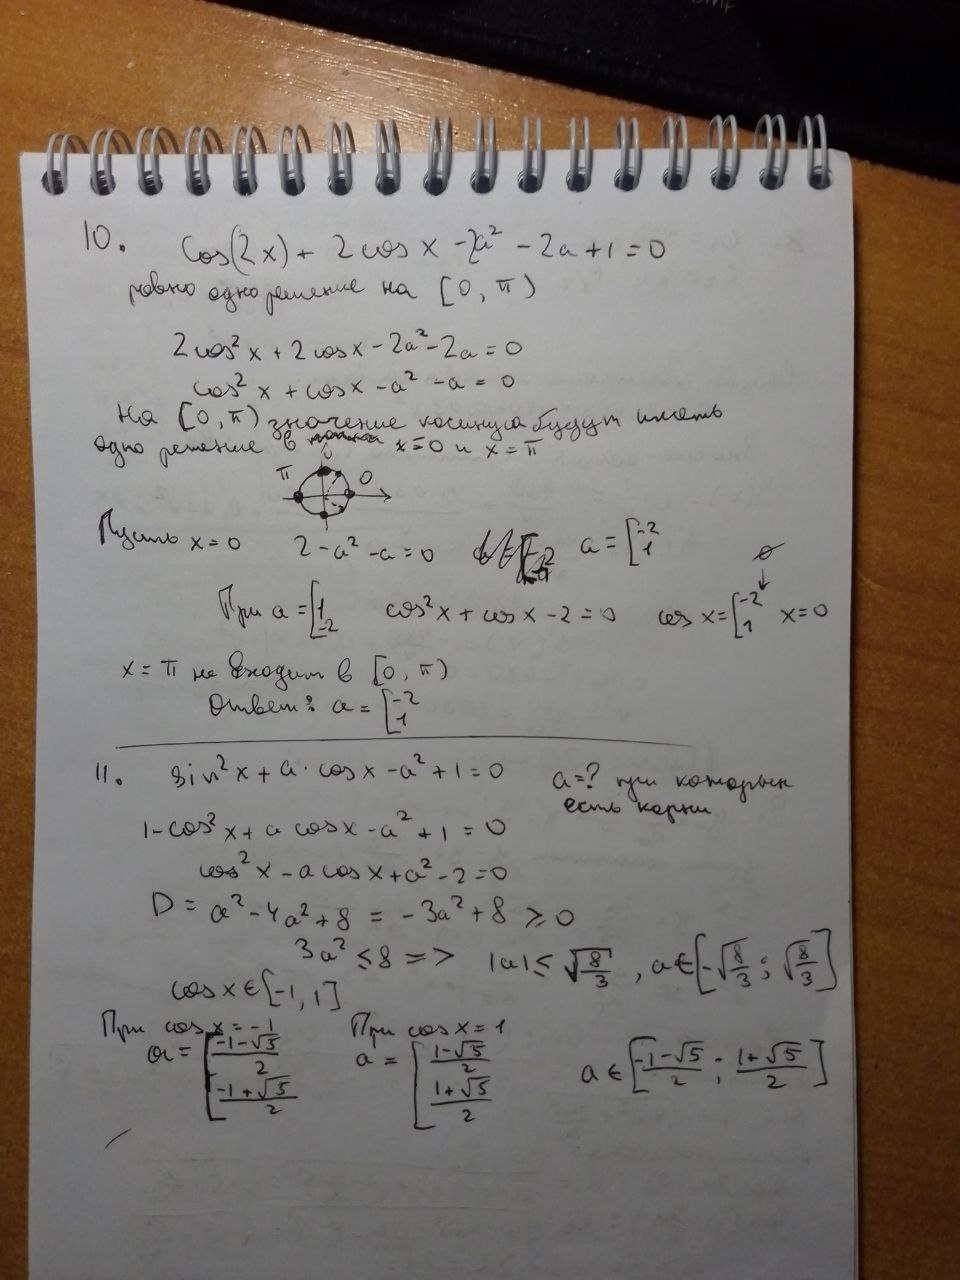 10. Cos(2x) + 2 cos x - 2a² - 2a + 1 = 0
ровно одно решение на [0, π)
2cos² x + 2 cos x - 2a² - 2a = 0
cos² x + cos x - a² - a = 0
На [0, π) значение косинуса будут иметь
одно решение в x = 0 и x = π
π 0
Пусть x = 0 2 - a² - a = 0 a = [-2 1
∅
При a = [1 -2 cos² x + cos x - 2 = 0 cos x = [-2 1 x = 0
x = π не входит в [0, π)
Ответ: a = [-2 1
11. sin² x + a · cos x - a² + 1 = 0 a = ? при которых
есть корни
1 - cos² x + a cos x - a² + 1 = 0
cos² x - a cos x + a² - 2 = 0
D = a² - 4a² + 8 = -3a² + 8 ≥ 0
3a² ≤ 8 => |a| ≤ √8/3, a ∈ [-√8/3 ; √8/3]
cos x ∈ [-1, 1]
При cos x = -1 При cos x = 1
a = [(-1-√5)/2 (-1+√5)/2 a = [(1-√5)/2 (1+√5)/2 a ∈ [(-1-√5)/2 ; (1+√5)/2]